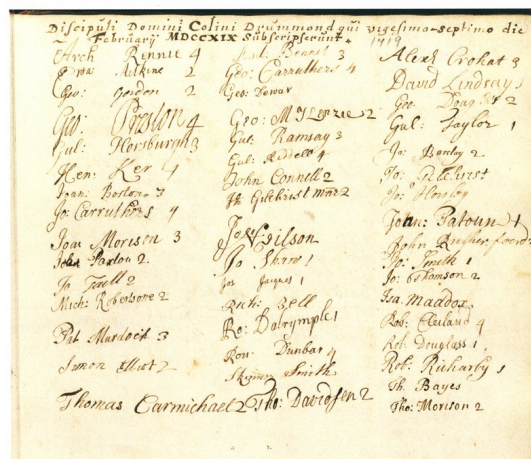 Discipuli Domini Colini Drummond qui vigesimo-septimo die
Februarij MDCCXIX Subscripserunt.
1719
Arch Rennie 4
Adkine 2
Geo: Gordon 2
Geo: Preston 4
Gul: Horsburgh 3
Hen: Ker 4
Joan: Boston 3
Jo: Carruthers 4
Joan Morison 3
Joh Paxton 2
Jo Tull 2
Mich: Robertsone 2
Pat Murdoch 3
Simon Elliot 2
Thomas Carmichael 2
3
Geo: Carruthers 4
Geo: Dewar
Geo: McKenzie 2
Gul: Ramsay 3
Gul: Riddell 4
John Connell 2
Gilchrist 2
Jo Gilson
Jo Shaw 1
Jos Jaques 1
Rich: Bell
Ro: Dalrymple 1
Ron: Dunbar 4
Skinner Smith
Tho: Davidson 2
Alexr Crokat 3
David Lindsay 3
Geo Douglas 2
Gul: Taylor 1
Ja: Barclay 2
Jo: Gilchrist
Jo: Horsley
Johan: Patoun 4
John
Jo: Smith 1
Jo: Thomson 2
Isa. Maddox
Rob: Cleiland 4
Rob: Douglass 1
Rob: Richarby 1
Th. Bayes
Tho: Morison 2